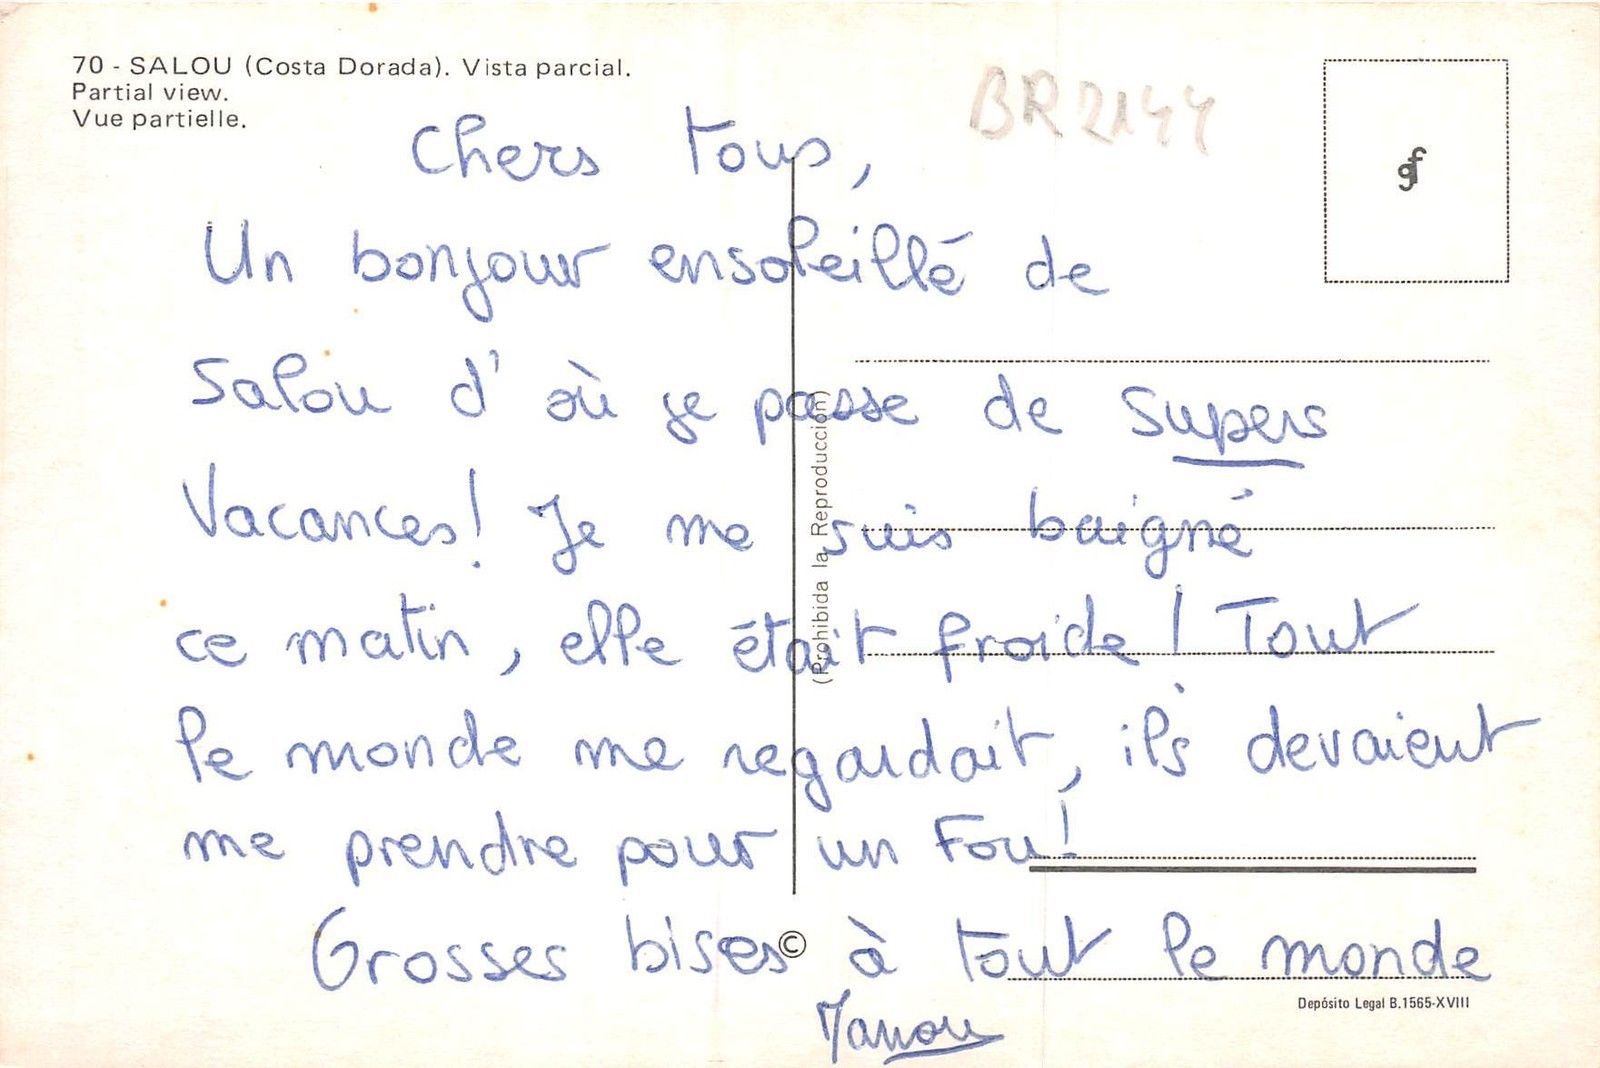 70 - SALOU (Costa Dorada). Vista parcial.
Partial view.
Vue partielle.
BR2144
gf
Chers tous,
Un bonjour ensoleillé de
Salou d'où je passe de Supers
Vacances! Je me suis baigné
ce matin, elle était froide! Tout
le monde me regardait, ils devaient
me prendre pour un Fou!
Grosses bises à tout le monde
Manou
(Prohibida la Reproducción)
©
Depósito Legal B.1565-XVIII